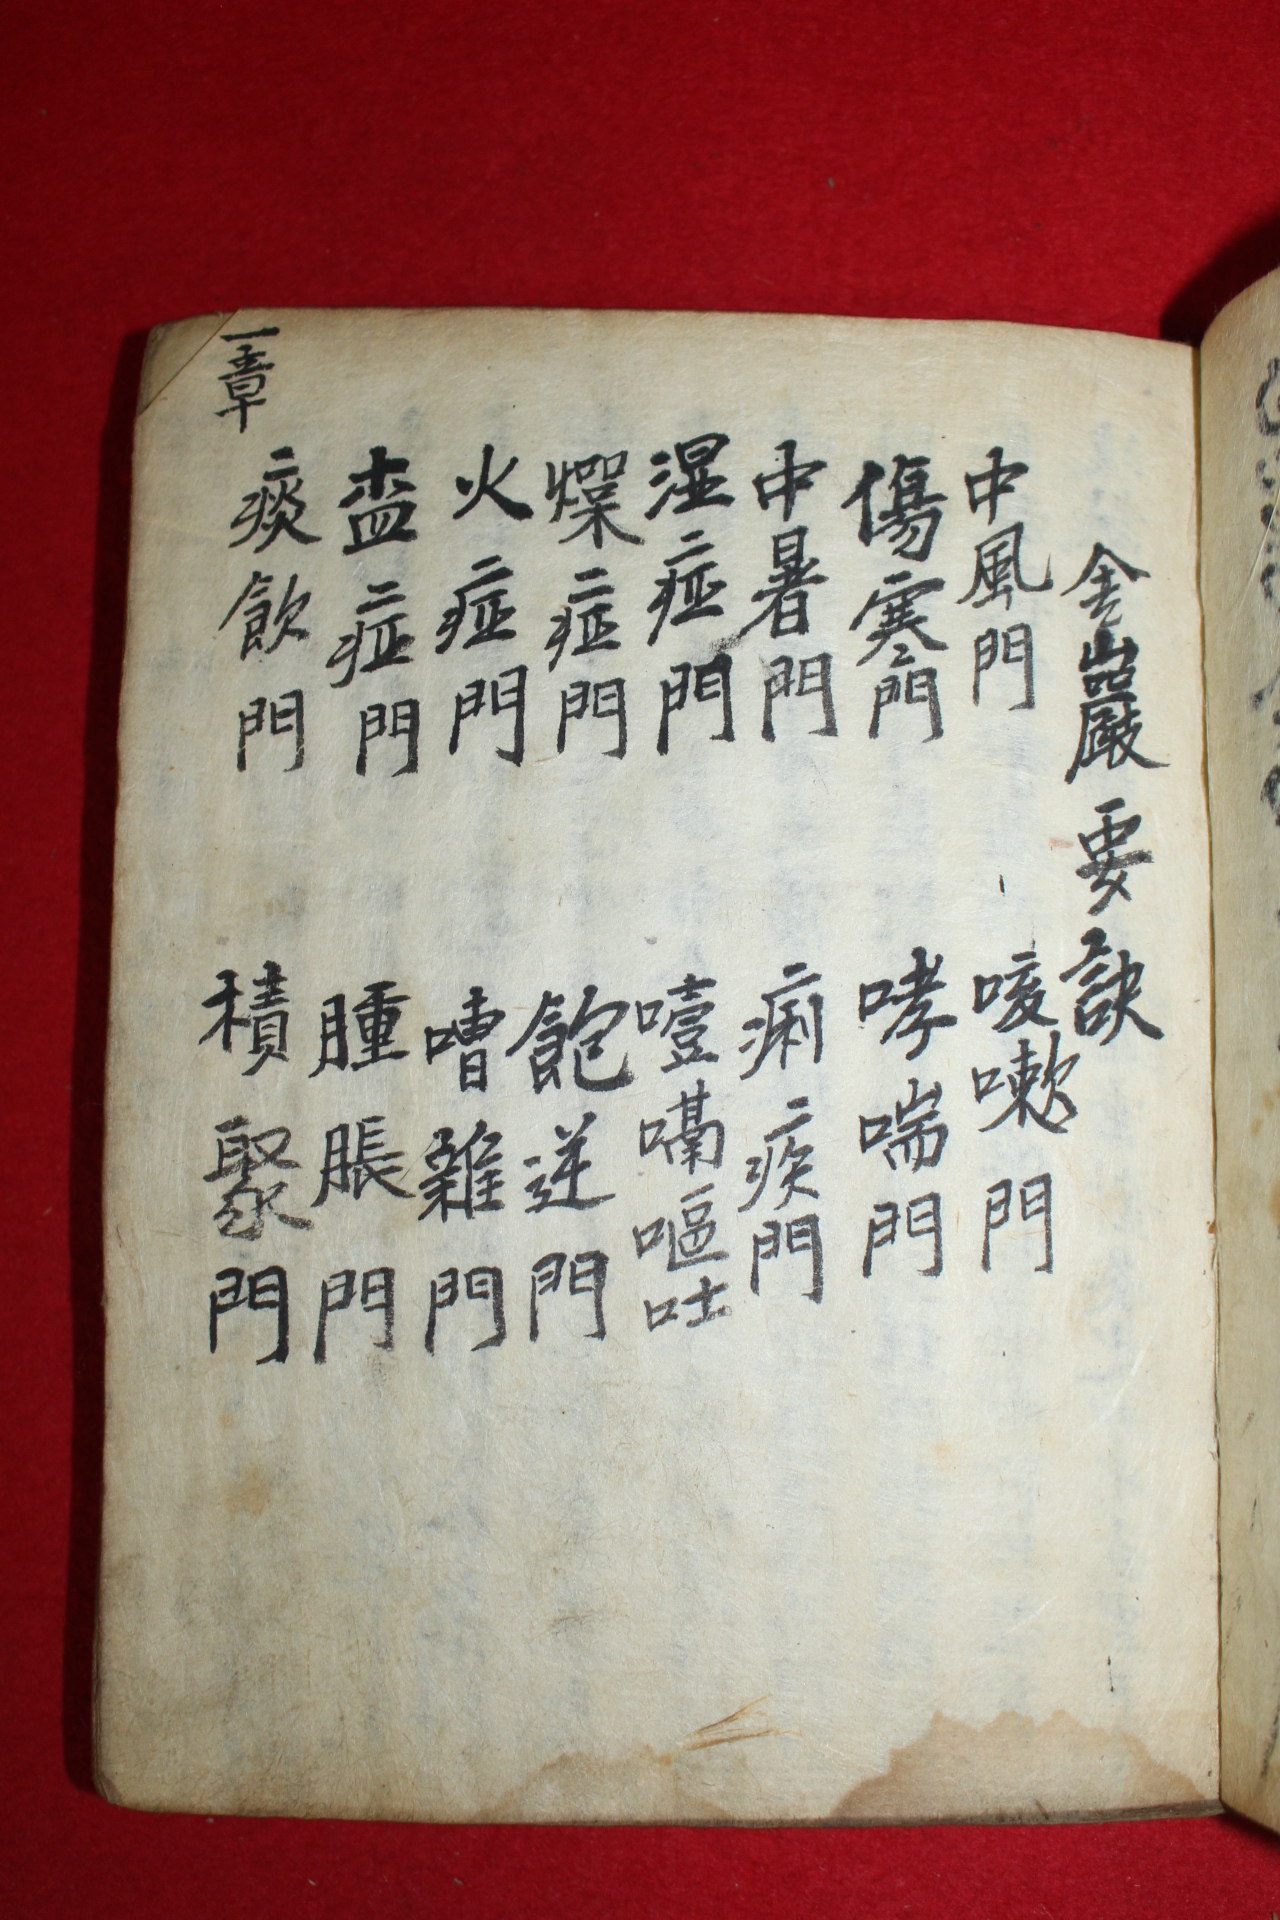 金巖要訣
中風門 咳嗽門
傷寒門 哮喘門
中暑門 痢疾門
湿症門 噎嗝嘔吐
燥症門 飽逆門
火症門 嘈雜門
症門 腫脹門
痰飮門 積聚門
一章